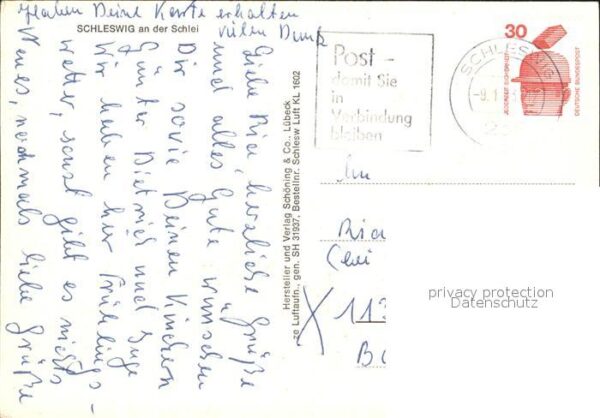 Haben Deine Karte erhalten
vielen Dank
SCHLESWIG an der Schlei
Liebe Ria, herzliche Grüße
und alles Gute wünschen
Dir sowie Deinen Kindern
Günter Dietrich und Inge
Wir haben hier Frühlings-
wetter, sonst gibt es nichts
Neues, nochmals liebe Grüße
Hersteller und Verlag Schöning & Co., Lübeck
ze Luftaufn., gen. SH 31937, Bestellnr. Schlesw Luft KL 1602
Post -
damit Sie
in
Verbindung
bleiben
SCHLESWIG
30
JEDERZEIT SICHERHEIT
DEUTSCHE BUNDESPOST
An
Ria
X 113
privacy protection
Datenschutz